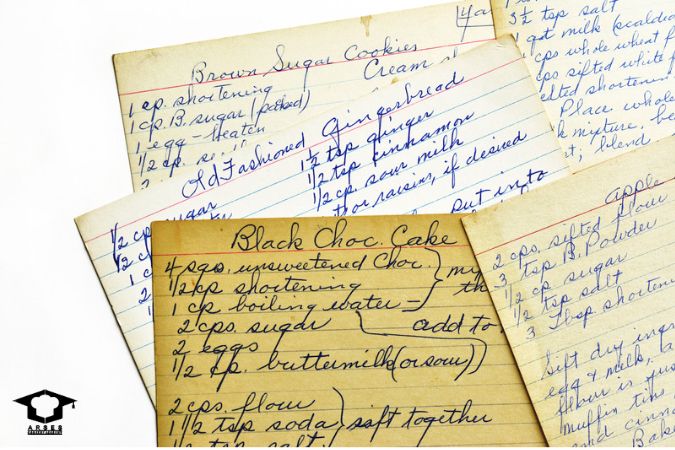 Brown Sugar Cookies
1 cp. shortening
1 cp. B. sugar (packed)
1 egg - beaten
1/2 cp.
Cream
Old Fashioned Gingerbread
1/2 cp sugar
1/2 cp
1 c
2
1 1/2 tsp ginger
1/2 tsp cinnamon
1/2 cp sour milk
or raisins, if desired
put into
Black Choc. Cake
4 sqs. unsweetened Choc.
1/2 cp shortening
1 cp boiling water
2 cps. sugar
add to
2 eggs
1/2 cp. buttermilk (or sour)
2 cps. flour
1 1/2 tsp soda
sift together
1/2 tsp salt
3 1/2 tsp salt
1 qt milk (scalded
cps whole wheat f
cps sifted white f
melted shortening
Place whole
mixture, be
blend
apple
2 cps. sifted flour
3 tsp B. Powder
1/2 cp sugar
1/2 tsp salt
3 Tbsp shorten
Sift dry ingr
egg & milk, a
flour is jus
muffin tins
and cinna
Bake
ARSES